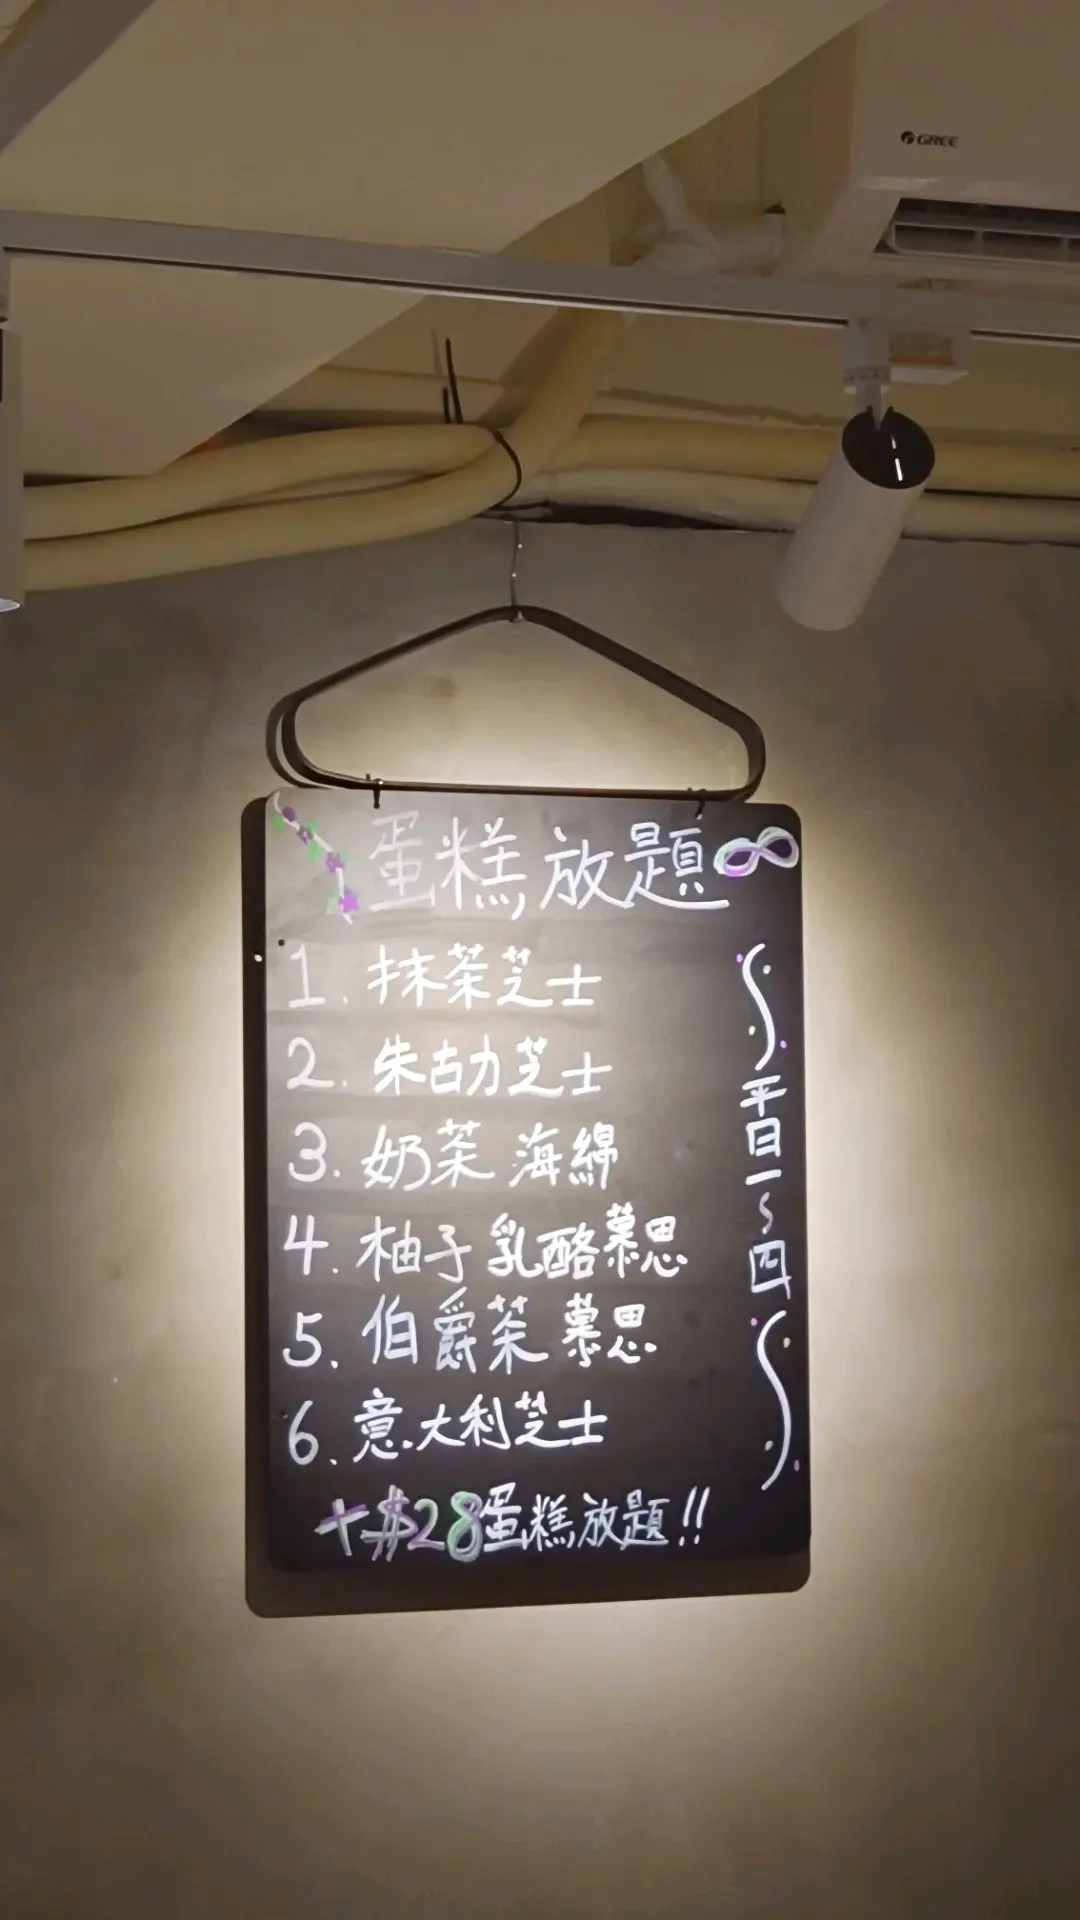 GREE
蛋糕放題∞
1. 抹茶芝士
2. 朱古力芝士
3. 奶茶 海綿
4. 柚子 乳酪慕思
5. 伯爵茶 慕思
6. 意大利芝士
+$28蛋糕放題!!
平日一~四